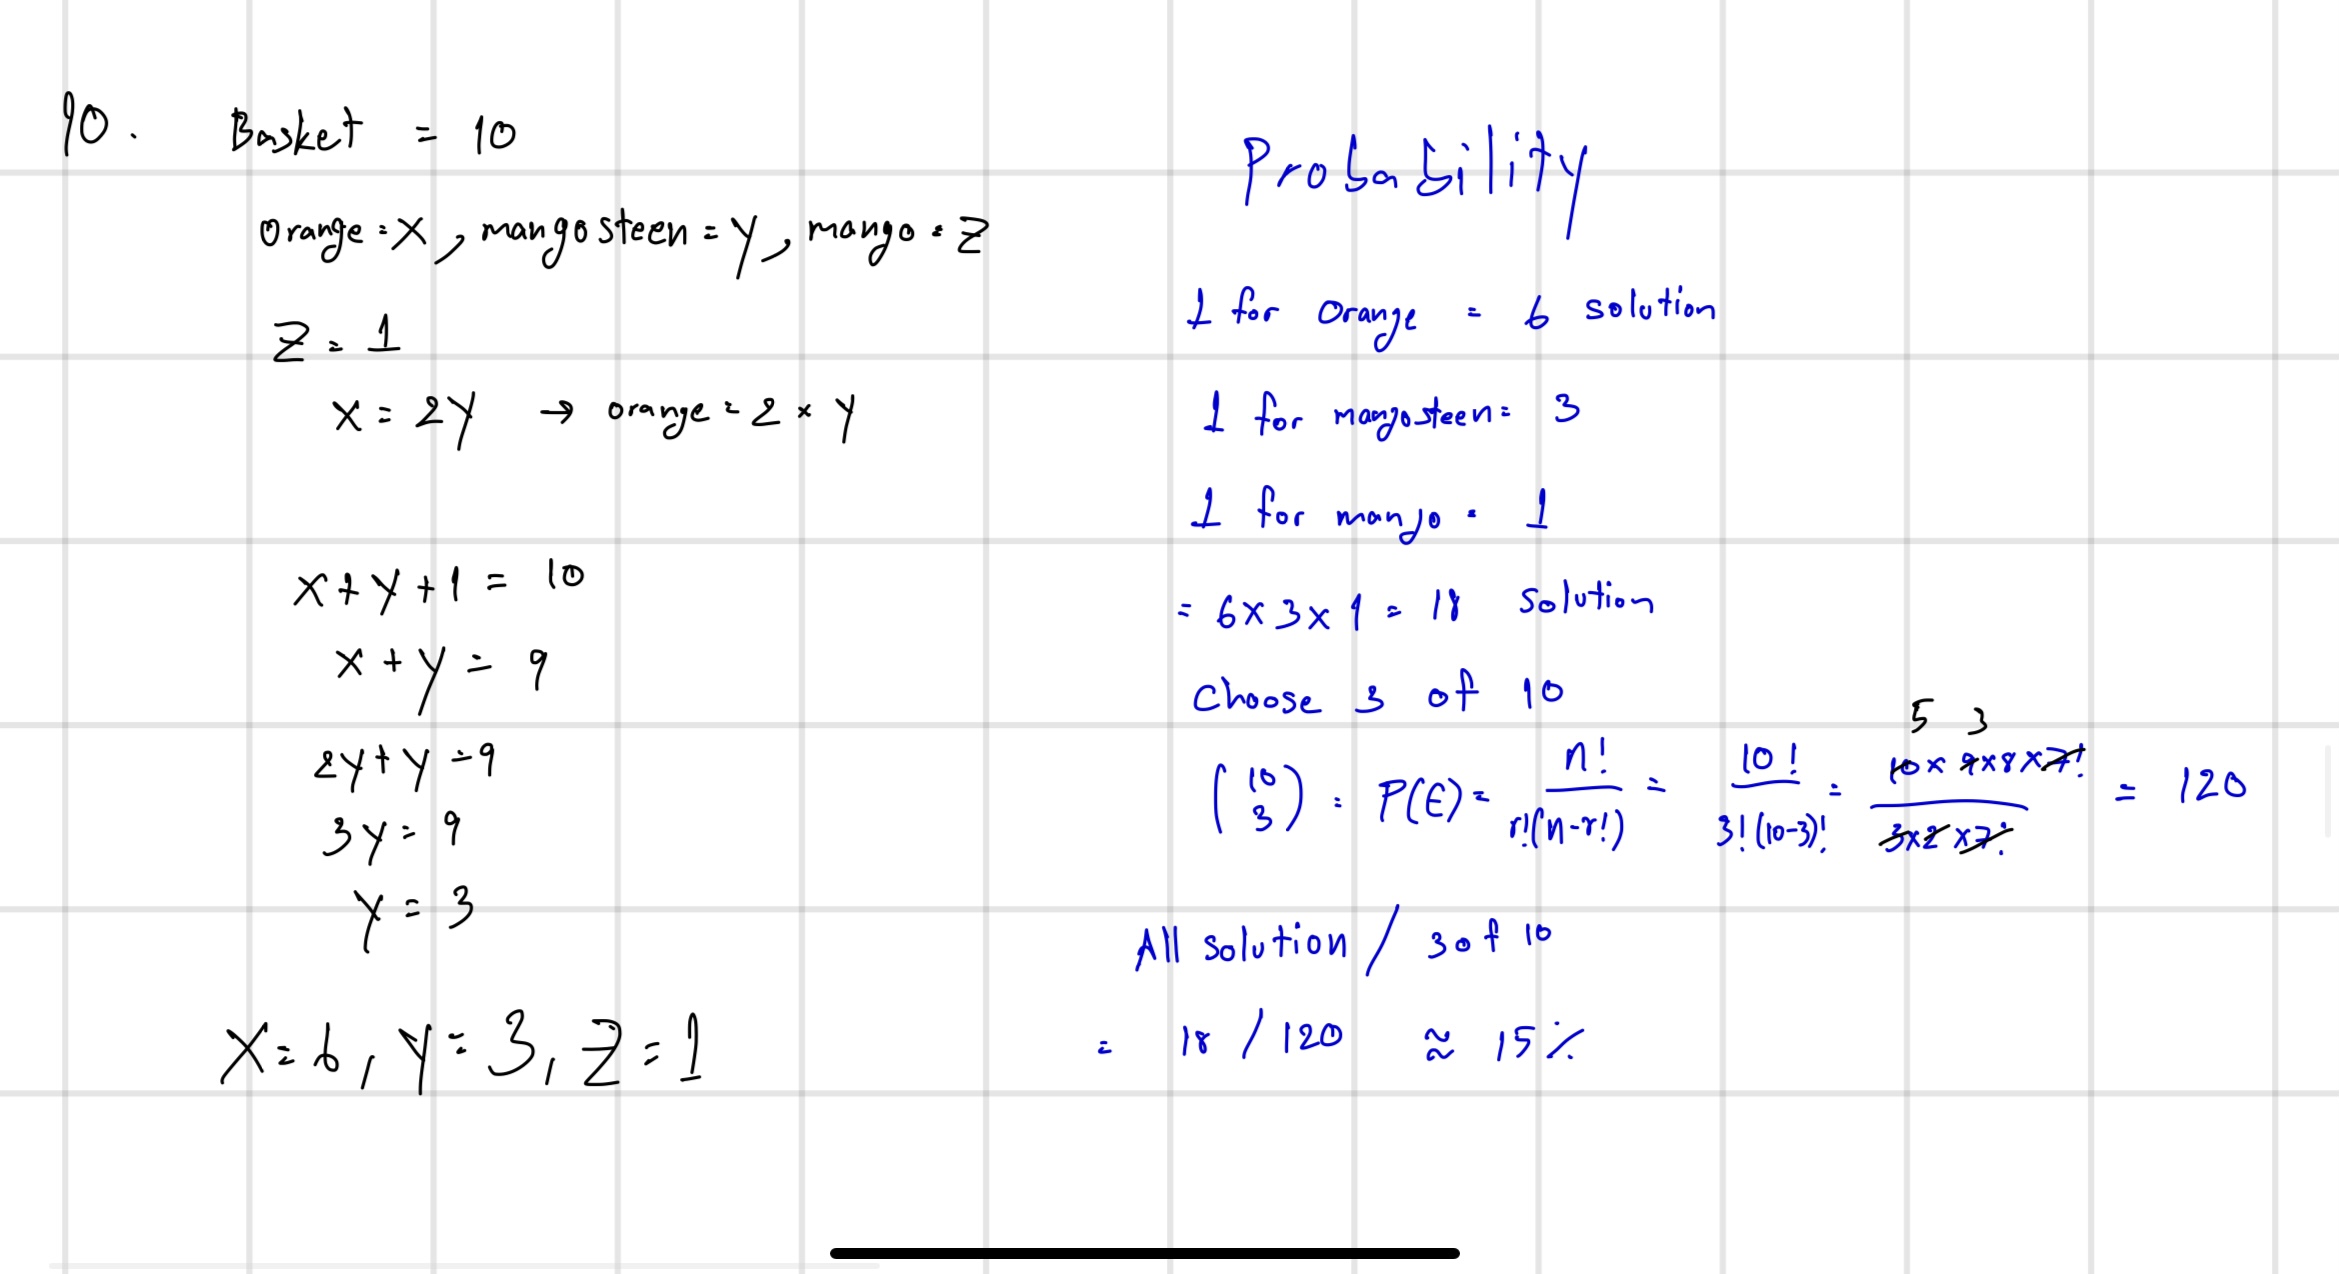 10. Basket = 10
orange = x, mangosteen = y, mango = z
z = 1
x = 2y → orange = 2 × y
x + y + 1 = 10
x + y = 9
2y + y = 9
3y = 9
y = 3
x = 6, y = 3, z = 1
Probability
1 for orange = 6 solution
1 for mangosteen = 3
1 for mango = 1
= 6 x 3 x 1 = 18 solution
Choose 3 of 10
(10 3) = P(E) = n! / r!(n-r!) = 10! / 3!(10-3)! = 10 x 9 x 8 x 7! / 3 x 2 x 7! = 120
5 3
All solution / 3 of 10
= 18 / 120 ≈ 15%